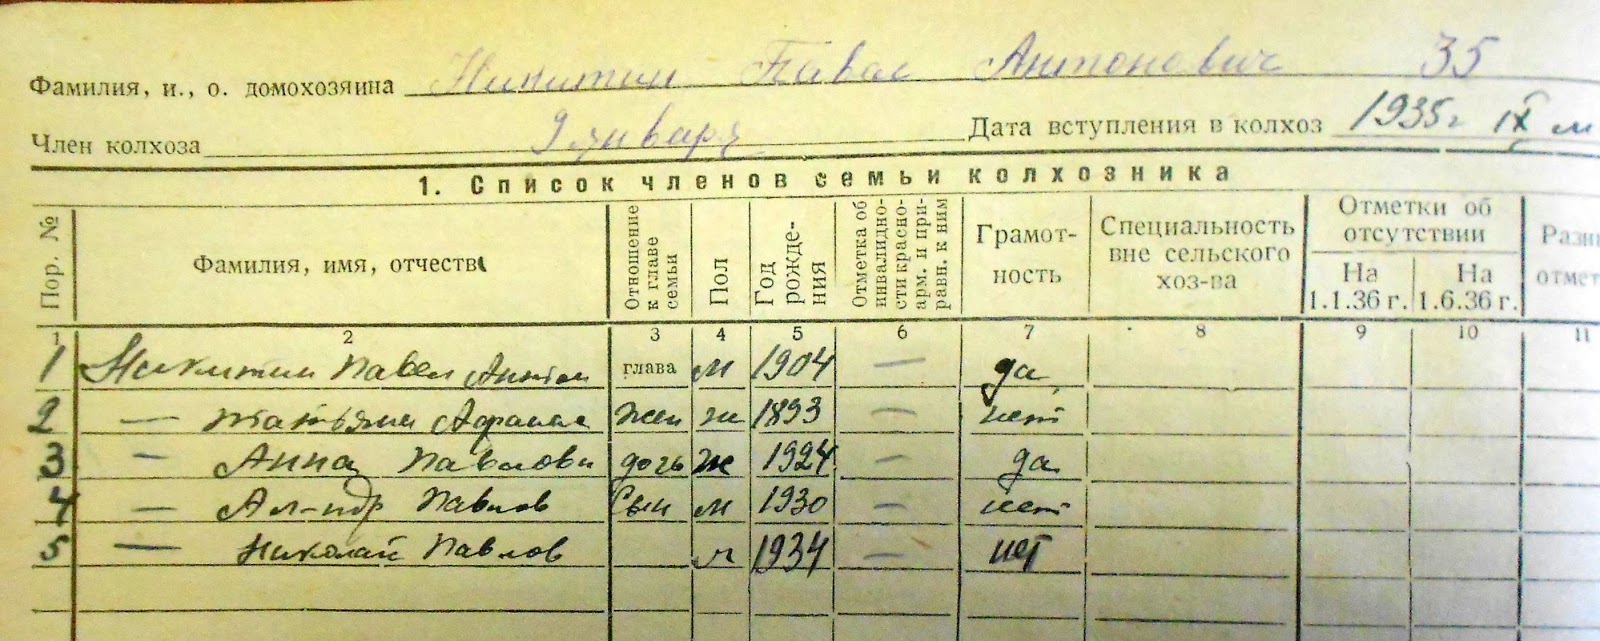 Фамилия, и., о. домохозяина Никитин Павел Антонович 35
Член колхоза 9 января Дата вступления в колхоз 1935 г IX м
1. Список членов семьи колхозника
Пор. № Фамилия, имя, отчеств Отношение к главе семьи Пол Год рожде-ния Отметка об инвалидно-сти красно-арм. и при-равн. к ним Грамот-ность Специальность вне сельского хоз-ва Отметки об отсутствии На 1.1.36 г. На 1.6.36 г. Разн отмет
1 2 3 4 5 6 7 8 9 10 11
1 Никитин Павел Антон глава м 1904 — да
2 — Татьяна Афанас жен ж 1893 — нет
3 — Анна Павловн дочь ж 1924 — да
4 — Ал-ндр Павлов Сын м 1930 — нет
5 — Николай Павлов м 1934 — нет